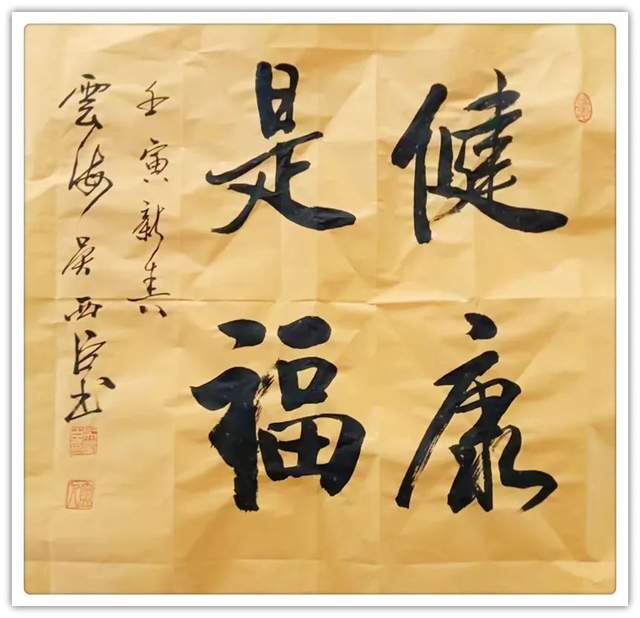 健康
是福
壬寅新春
雲海吴西臣书